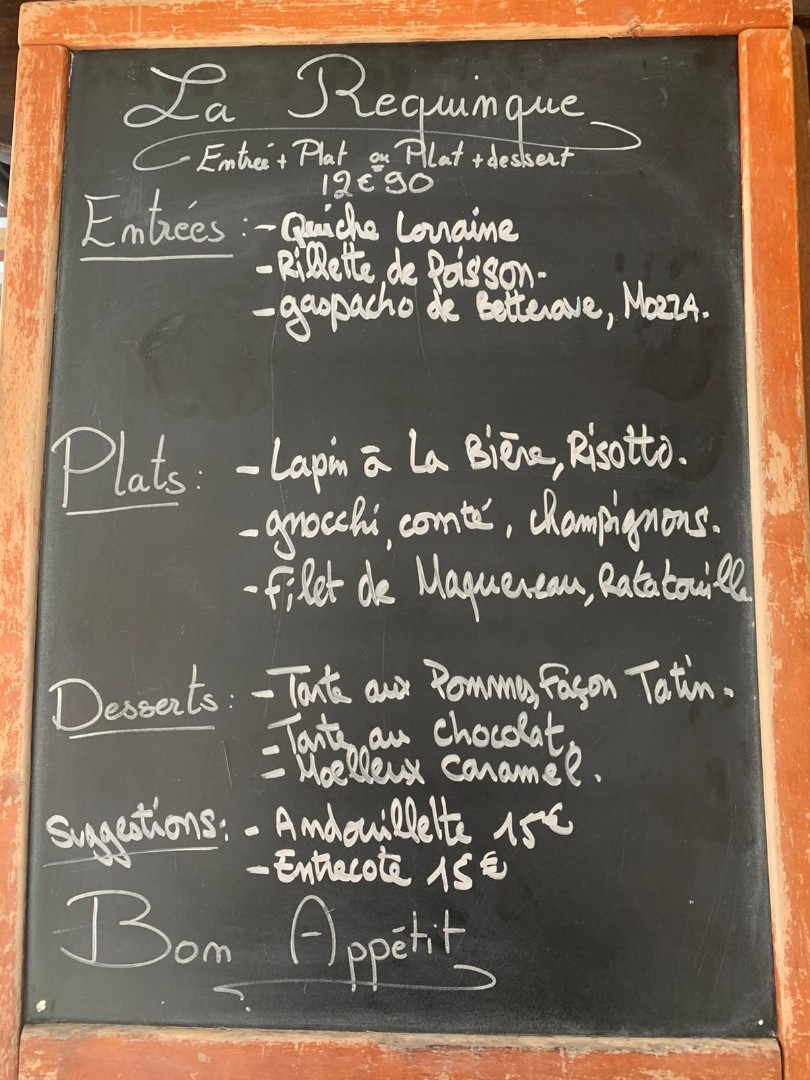 La Requinque
Entrée + Plat ou Plat + dessert
12€90
Entrées : - Quiche Lorraine
- Rillette de Poisson.
- gaspacho de Betterave, Mozza.
Plats : - Lapin à La Bière, Risotto.
- gnocchi, comté, champignons.
- Filet de Maquereau, Ratatouille
Desserts : - Tarte aux Pommes, Façon Tatin.
- Tarte au chocolat.
- Moelleux caramel.
Suggestions : - Andouillette 15€
- Entrecote 15€
Bon Appétit